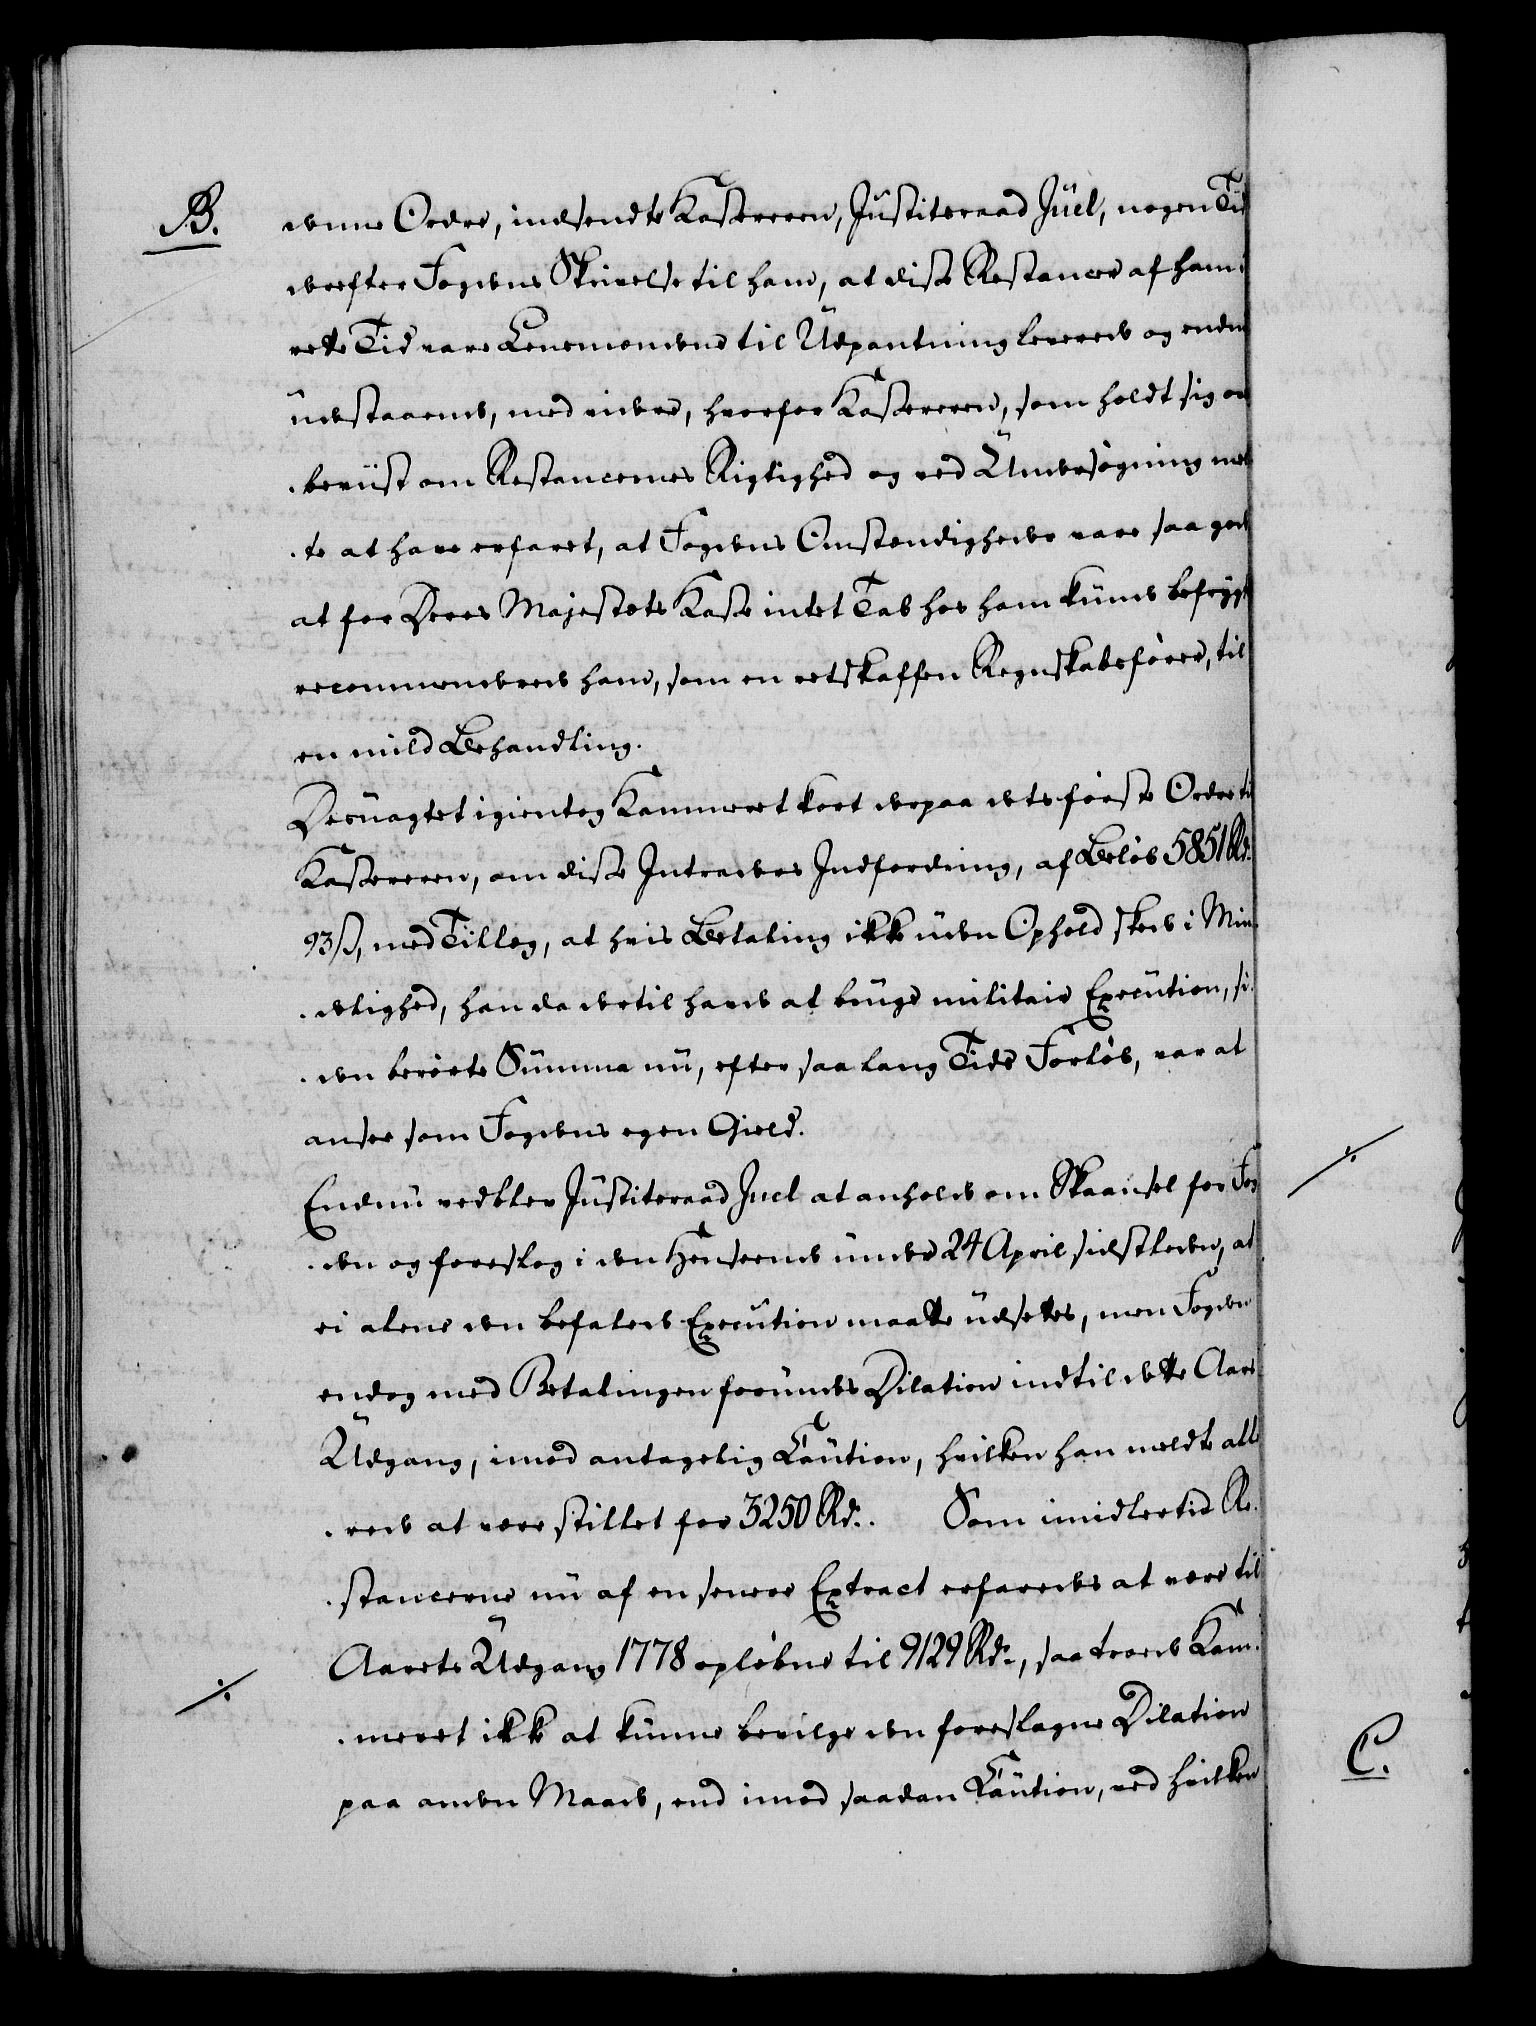 B.
denne Ordre, indsendte Kassereren, Justitsraad Juel, nogen Tid
derefter Fogdens Skrivelse til ham, at disse Restancer af ham i
rette Tid vare Lensmændene til Udpantning leverede og endnu
udestaaende, med videre, hvorfor Kassereren, som holdt sig over
beviist om Restancernes Rigtighed og ved Undersøgning meen
te at have erfaret, at Fogdens Omstændigheder vare saa gode
at for Deres Majestæts Kasse intet Tab hos ham kunde befrygt
recommenderede ham, som en retskaffen Regnskabsfører, til
en mild Behandling.
Desuagtet igientog Kammeret kort derpaa dets første Ordre til
Kassereren, om disse Intraders Indfordring, af Beløb 5851 Rd.
93 ß, med Tillæg, at hvis Betaling ikke uden Ophold skede i Min
delighed, han da dertil havde at bruge militair Execution, si
den berørte Summa nu, efter saa lang Tids Forløb, var at
ansee som Fogdens egen Gield.
Endnu vedblev Justitsraad Juel at anholde om Skaansel for Fog
den og foreslog i den Henseende under 24 April sidstleden, at
ei alene den befalede Execution maatte udsettes, men Fogden
endog med Betalingen forundes Dilation indtil dette Aars
Udgang, imod antagelig Caution, hvilken han meldte alle
rede at være stillet for 3250 Rd. Som imidlertid Re
stancerne nu af en senere Extract erfaredes at være til
Aarets Udgang 1778 opløbne til 9129 Rd., saa troede Kam
meret ikke at kunne bevilge den foreslagne Dilation
paa anden Maade, end imod saadan Caution, ved hvilken
C.